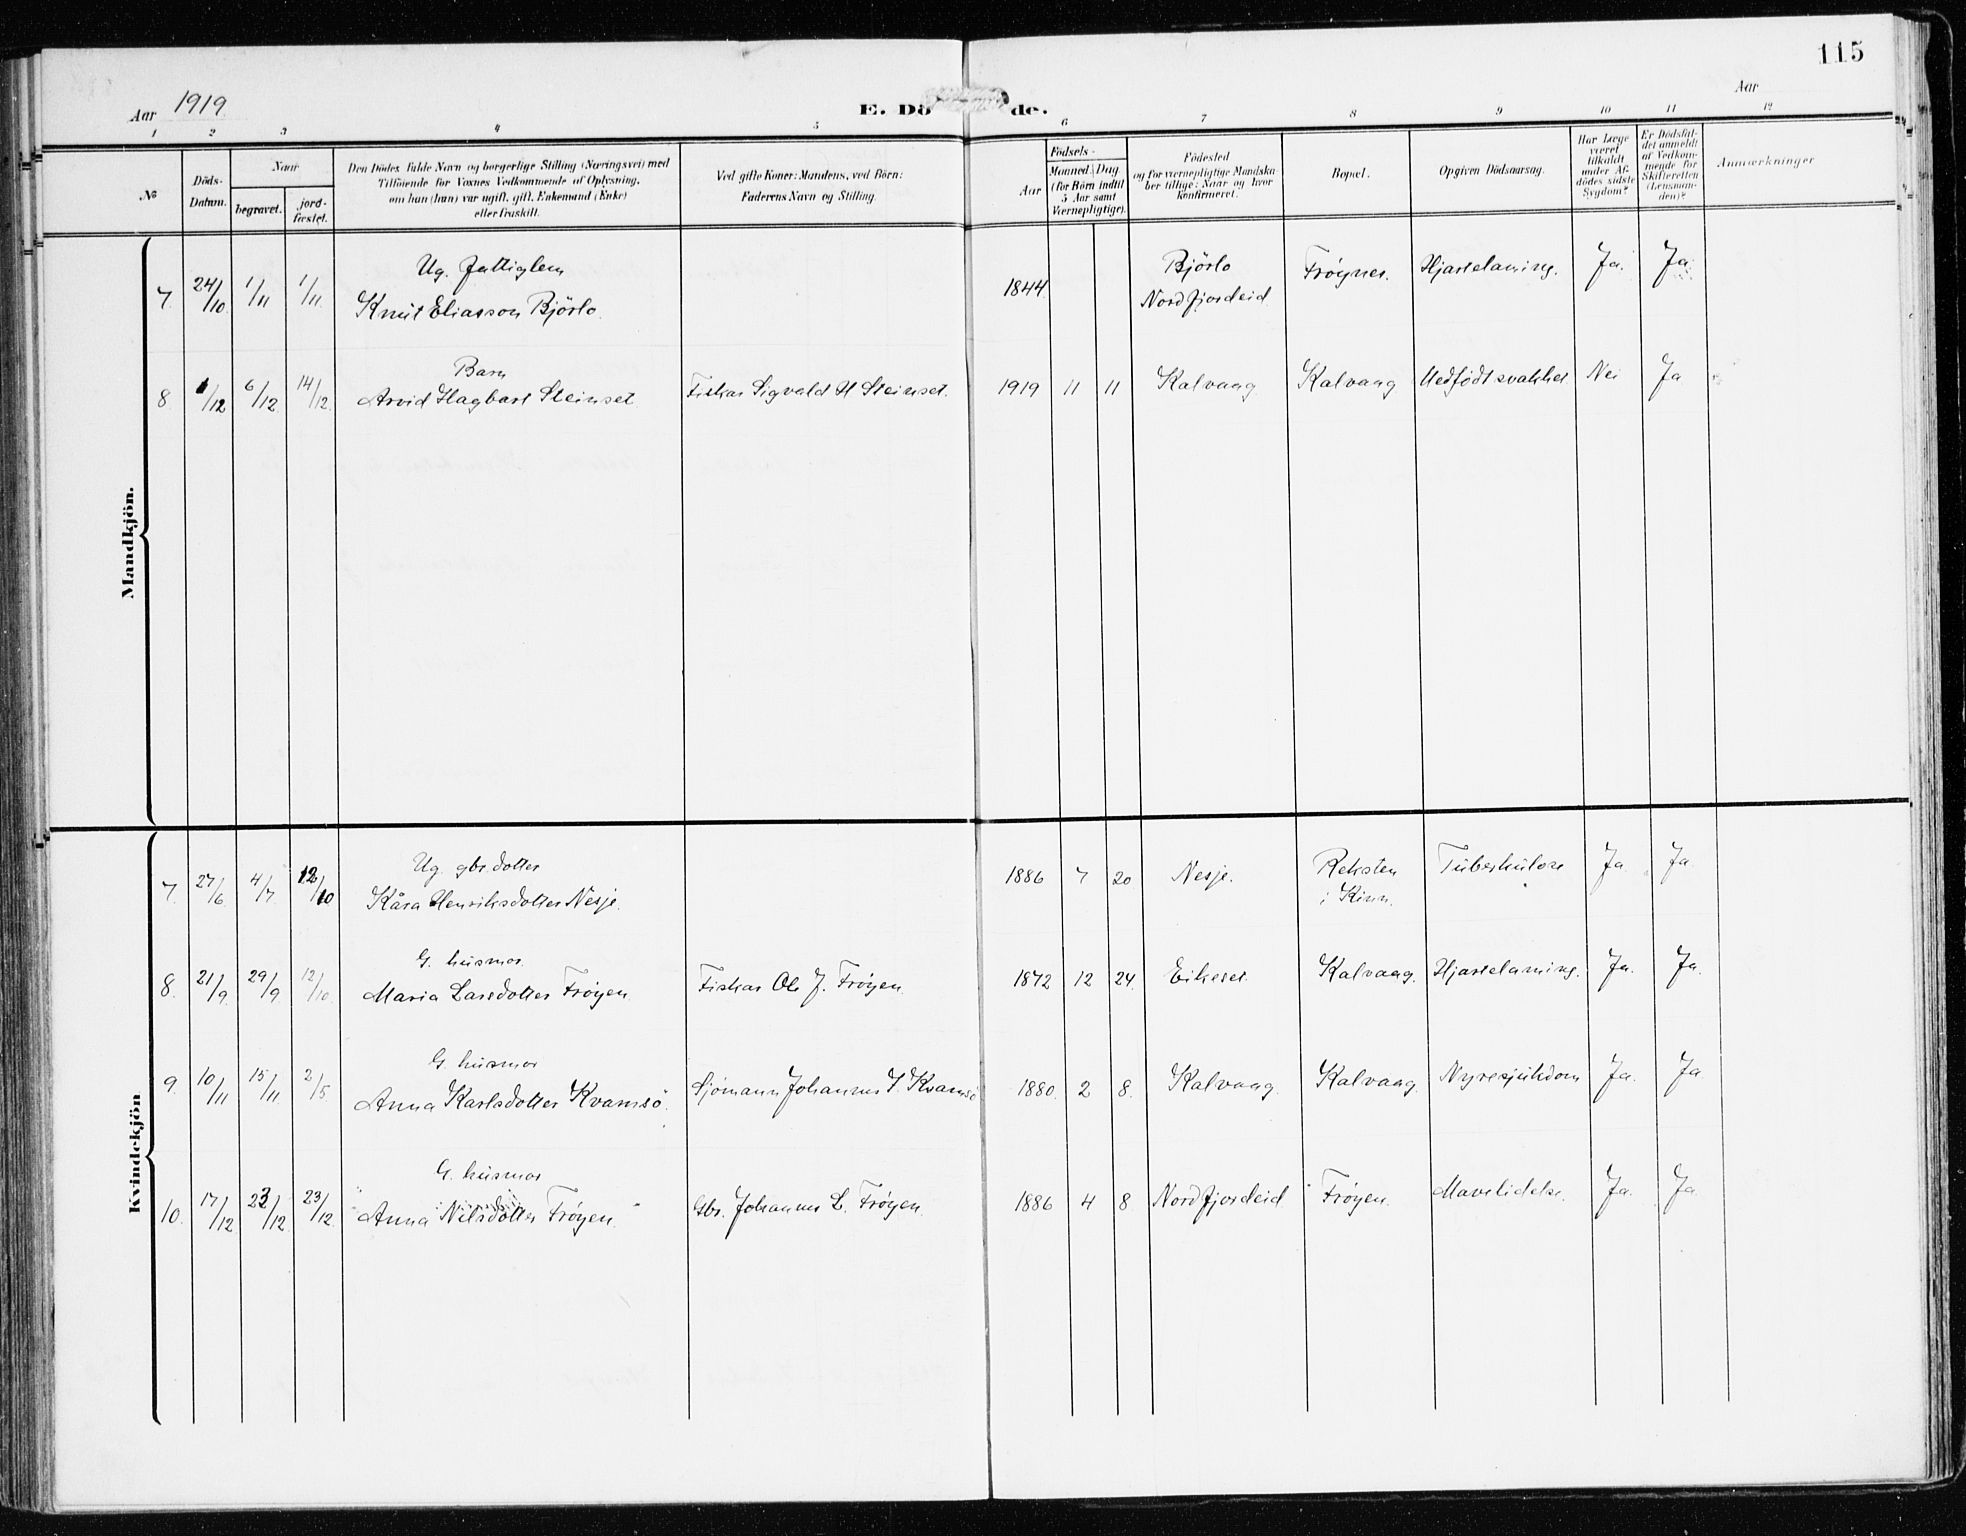 115
Aar 1919.
E. Dö de.
Aar
1 2 3 4 5 6 7 8 9 10 11 12
№
Döds-
Datum.
Naar
begravet.
jord-
fæstet.
Den Dödes fulde Navn og borgerlige Stilling (Næringsvei) med
Tilföiende for Voxnes Vedkommende af Oplysning,
om han (hun) var ugift, gift, Enkemand (Enke)
eller fraskilt.
Ved gifte Koner: Mandens, ved Börn:
Faderens Navn og Stilling.
Födsels-
Aar
Maaned. Dag
(for Börn indtil
5 Aar samt
Værnepligtige).
Födested
og for værnepligtige Mandska-
ber tillige: Naar og hvor
konfirmeret.
Bopæl.
Opgiven Dödsaarsag.
Har Læge
været
tilkaldt
under Af-
dödes sidste
Sygdom?
Er Dödsfal-
det anmeldt
af Vedkom-
mende for
Skifteretten
(Lensman-
den)?
Anmærkninger
Mandkjön.
Ug. fattiglem Björlo
7. 24/10. 1/11 1/11. Knut Eliasson Björlo. 1844 Nordfjordeid Fröynes. Hjartelaming. Ja. Ja.
Barn
8. 1/12 6/12. 14/12. Arvid Hagbart Steinset Fiskar Sigvald H Steinset. 1919 11 11 Kalvaag Kalvaag Medfödt svakhet Nei Ja
Kvindekjön
Ug. gbr.dotter
7. 27/6. 4/7. 12/10 Kåra Henriksdotter Nesje. 1886 7 20 Nesje. Reksten Tuberkulose Ja. Ja.
i Kinn.
G. husmor.
8. 21/9. 29/9 12/10. Maria Larsdotter Fröyen. Fiskar Ole J. Fröyen. 1872 12 24. Eikeset Kalvaag. Hjartelaming. Ja. Ja.
G. husmor
9. 10/11 15/11 2/5. Anna Karlsdotter Kvamsö. Sjömann Johannes J. Kvamsö 1880. 2 8. Kalvaag. Kalvaag. Nyresjukdom Ja. Ja
G. husmor
10. 17/12 23/12 23/12. Anna Nilsdotter Fröyen. Gbr. Johannes L. Fröyen. 1886 4 8 Nordfjordeid Fröyen. Mavelidelse. Ja. Ja.